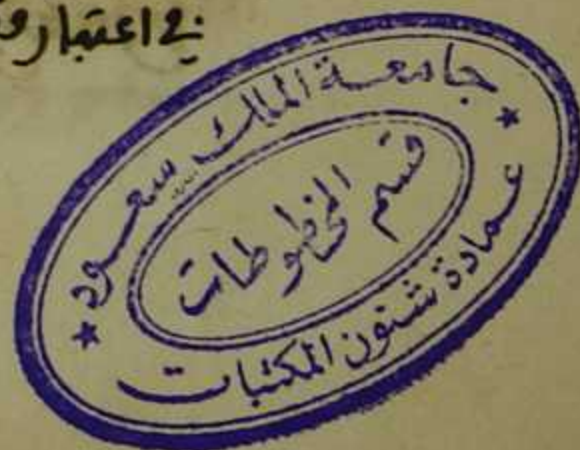 في اعتبار
جامعة الملك سعود
قسم المخطوطات
عمادة شئون المكتبات